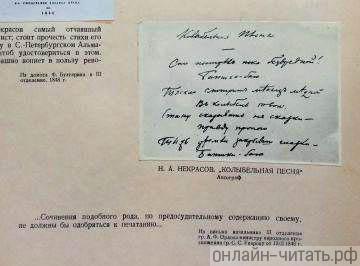 1846
...красов самый отчаянный
...ист; стоит прочесть стихи его
...у в С.-Петербургском Альма-
...тоб удостовериться в этом.
...рашно вопиет в пользу рево-
Из доноса Ф. Булгарина в III
отделение. 1848 г.
Колыбельная Песня
Спи пострел пока безвредной!
Баюшки-баю
Тускло смотрит месяц медной
В колыбель твою.
Стану сказывать не сказки-
Правду пропою
Ты ж дремли закрывши глазки-
Баюшки-баю
Н. А. НЕКРАСОВ. „КОЛЫБЕЛЬНАЯ ПЕСНЯ"
Автограф
...Сочинения подобного рода, по предосудительному содержанию своему,
не должны бы одобряться к печатанию...
Из письма начальника III отделения
гр. А. Ф. Орлова министру народного про-
свещения гр. С. С. Уварову от 1846 г.
онлайн-читать.рф